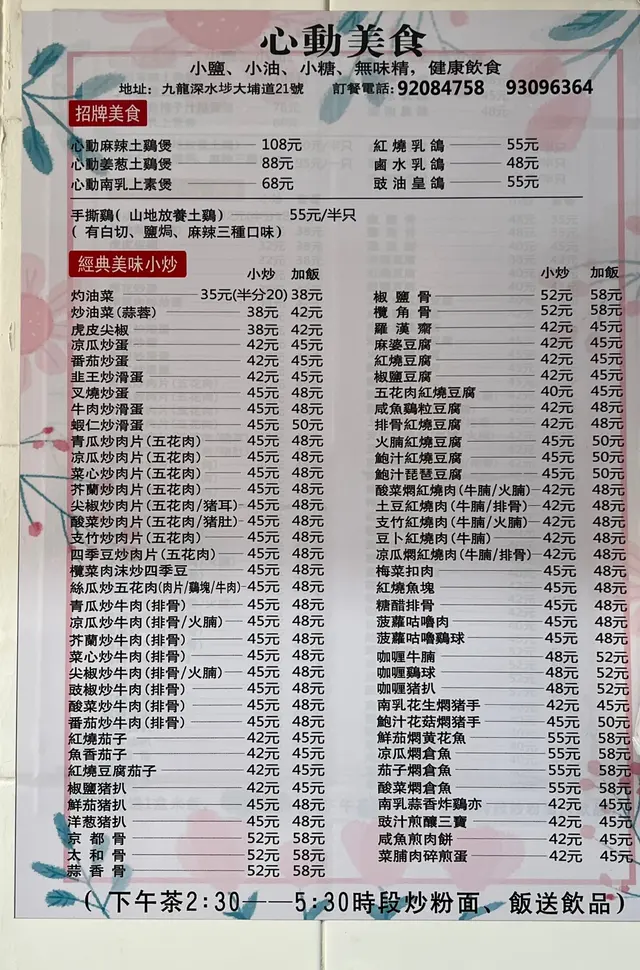 心動美食
小鹽、小油、小糖、無味精，健康飲食
地址: 九龍深水埗大埔道21號 訂餐電話: 92084758 93096364
招牌美食
心動麻辣土鷄煲 108元
心動姜葱土鷄煲 88元
心動南乳上素煲 68元
紅燒乳鴿 55元
鹵水乳鴿 48元
豉油皇鴿 55元
手撕鷄( 山地放養土鷄) 55元/半只
( 有白切、鹽焗、麻辣三種口味)
經典美味小炒
小炒 加飯
灼油菜 35元(半分20) 38元
炒油菜(蒜蓉) 38元 42元
虎皮尖椒 38元 42元
凉瓜炒蛋 42元 45元
番茄炒蛋 42元 45元
韭王炒滑蛋 42元 45元
叉燒炒蛋 45元 48元
牛肉炒滑蛋 45元 48元
蝦仁炒滑蛋 45元 50元
青瓜炒肉片(五花肉) 45元 48元
凉瓜炒肉片(五花肉) 45元 48元
菜心炒肉片(五花肉) 45元 48元
芥蘭炒肉片(五花肉) 45元 48元
尖椒炒肉片(五花肉/猪耳) 45元 48元
酸菜炒肉片(五花肉/猪肚) 45元 48元
支竹炒肉片(五花肉) 45元 48元
四季豆炒肉片(五花肉) 45元 48元
欖菜肉沫炒四季豆 45元 48元
絲瓜炒五花肉(肉片/鷄塊/牛肉) 45元 48元
青瓜炒牛肉(排骨) 45元 48元
凉瓜炒牛肉(排骨/火腩) 45元 48元
芥蘭炒牛肉(排骨) 45元 48元
菜心炒牛肉(排骨) 45元 48元
尖椒炒牛肉(排骨/火腩) 45元 48元
豉椒炒牛肉(排骨) 45元 48元
酸菜炒牛肉(排骨) 45元 48元
番茄炒牛肉(排骨) 45元 48元
紅燒茄子 42元 45元
魚香茄子 42元 45元
紅燒豆腐茄子 42元 45元
椒鹽豬扒 42元 45元
鮮茄豬扒 45元 48元
洋葱豬扒 45元 48元
京都骨 52元 58元
太和骨 52元 58元
蒜香骨 52元 58元
小炒 加飯
椒鹽骨 52元 58元
欖角骨 52元 58元
羅漢齋 42元 45元
麻婆豆腐 42元 45元
紅燒豆腐 42元 45元
椒鹽豆腐 42元 45元
五花肉紅燒豆腐 40元 45元
咸魚鷄粒豆腐 42元 48元
排骨紅燒豆腐 42元 48元
火腩紅燒豆腐 45元 50元
鮑汁紅燒豆腐 45元 50元
鮑汁琵琶豆腐 45元 50元
酸菜燜紅燒肉(牛腩/火腩) 42元 48元
土豆紅燒肉(牛腩/排骨) 42元 48元
支竹紅燒肉(牛腩/火腩) 42元 48元
豆卜紅燒肉(牛腩) 42元 48元
凉瓜燜紅燒肉(牛腩/排骨) 42元 48元
梅菜扣肉 42元 48元
紅燒魚塊 45元 48元
糖醋排骨 45元 48元
菠蘿咕嚕肉 45元 48元
菠蘿咕嚕鷄球 45元 48元
咖喱牛腩 48元 52元
咖喱鷄球 48元 52元
咖喱豬扒 48元 52元
南乳花生燜猪手 42元 45元
鮑汁花菇燜猪手 45元 50元
鮮茄燜黄花魚 55元 58元
凉瓜燜倉魚 55元 58元
茄子燜倉魚 55元 58元
酸菜燜倉魚 55元 58元
南乳蒜香炸鷄亦 42元 45元
豉汁煎釀三寶 42元 45元
咸魚煎肉餅 42元 45元
菜脯肉碎煎蛋 42元 45元
( 下午茶2:30——5:30時段炒粉面、飯送飲品)